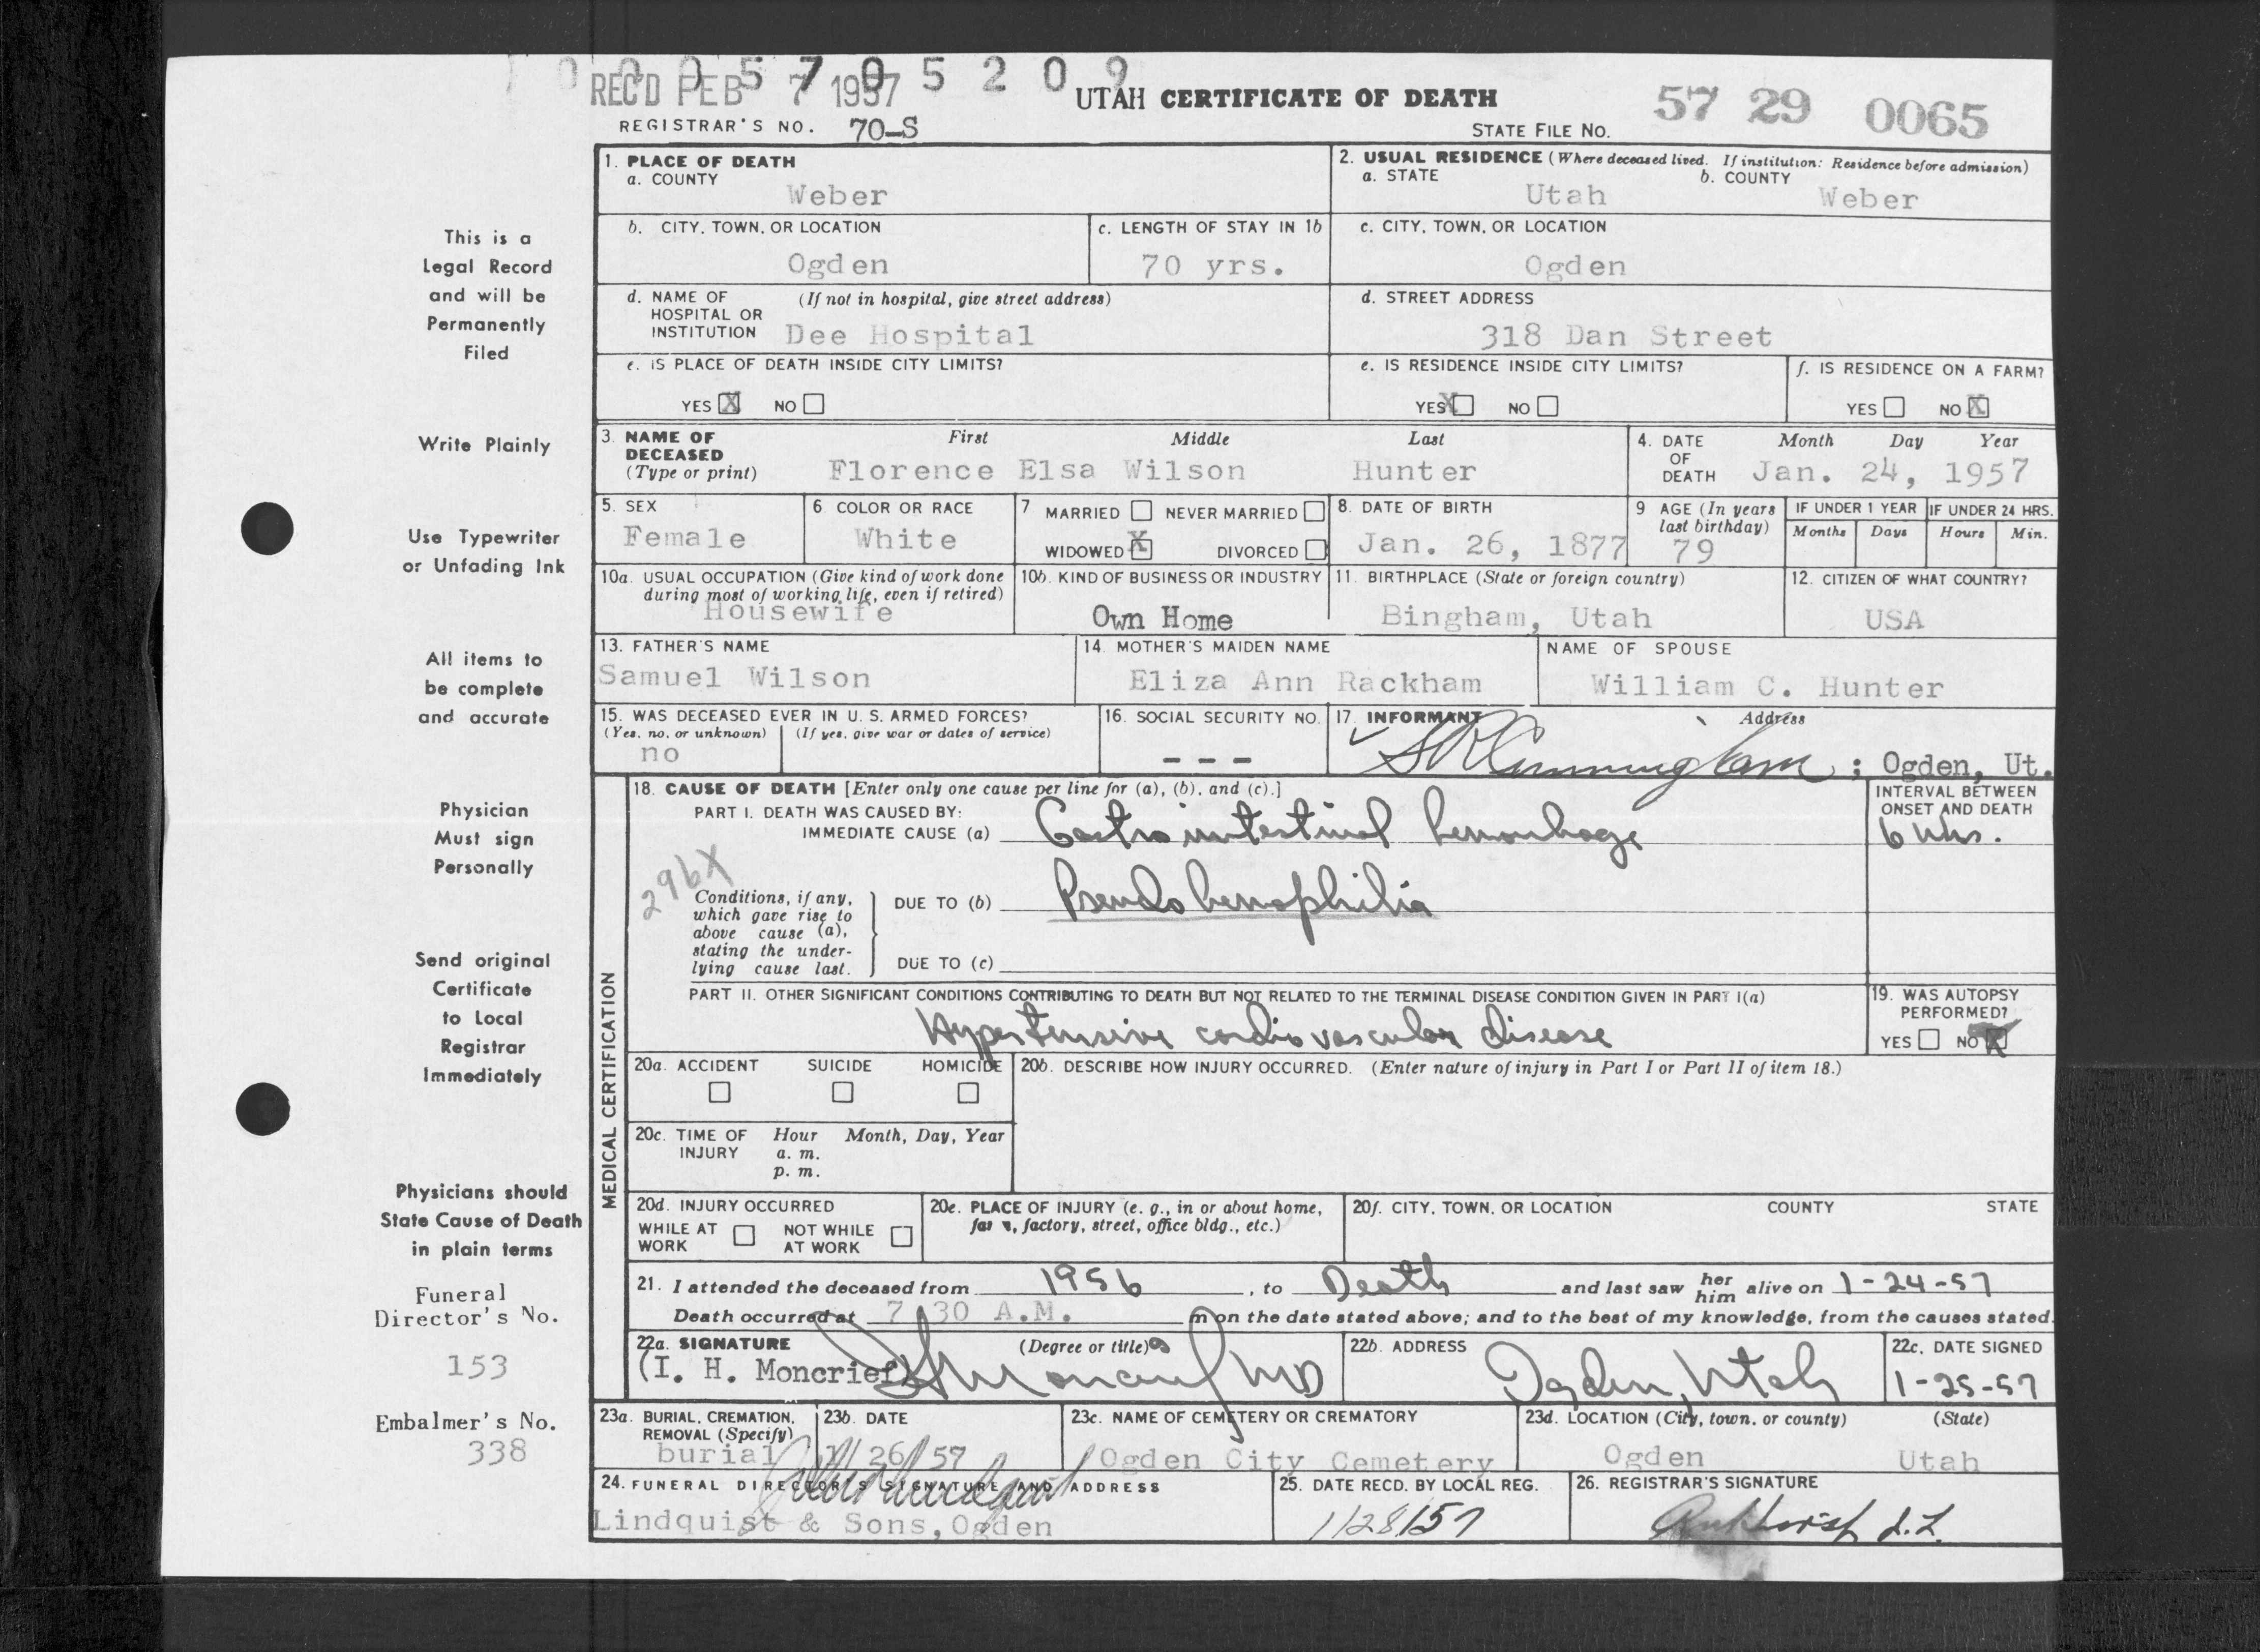 0 0 0 5 7 0 5 2 0 9
REC'D FEB 7 1957
UTAH CERTIFICATE OF DEATH
57 29 0065
REGISTRAR'S NO. 70-S
STATE FILE NO.
This is a
Legal Record
and will be
Permanently
Filed
Write Plainly
Use Typewriter
or Unfading Ink
All items to
be complete
and accurate
Physician
Must sign
Personally
Send original
Certificate
to Local
Registrar
Immediately
Physicians should
State Cause of Death
in plain terms
Funeral
Director's No.
153
Embalmer's No.
338
1. PLACE OF DEATH
a. COUNTY
Weber
2. USUAL RESIDENCE (Where deceased lived. If institution: Residence before admission)
a. STATE b. COUNTY
Utah Weber
b. CITY, TOWN, OR LOCATION
Ogden
c. LENGTH OF STAY IN 1b
70 yrs.
c. CITY, TOWN, OR LOCATION
Ogden
d. NAME OF (If not in hospital, give street address)
HOSPITAL OR
INSTITUTION Dee Hospital
d. STREET ADDRESS
318 Dan Street
e. IS PLACE OF DEATH INSIDE CITY LIMITS?
YES X NO
e. IS RESIDENCE INSIDE CITY LIMITS?
YES X NO
f. IS RESIDENCE ON A FARM?
YES NO X
3. NAME OF First Middle Last
DECEASED
(Type or print) Florence Elsa Wilson Hunter
4. DATE Month Day Year
OF
DEATH Jan. 24, 1957
5. SEX
Female
6 COLOR OR RACE
White
7 MARRIED NEVER MARRIED
WIDOWED X DIVORCED
8. DATE OF BIRTH
Jan. 26, 1877
9 AGE (In years
last birthday)
79
IF UNDER 1 YEAR
Months Days
IF UNDER 24 HRS.
Hours Min.
10a. USUAL OCCUPATION (Give kind of work done
during most of working life, even if retired)
Housewife
10b. KIND OF BUSINESS OR INDUSTRY
Own Home
11. BIRTHPLACE (State or foreign country)
Bingham, Utah
12. CITIZEN OF WHAT COUNTRY?
USA
13. FATHER'S NAME
Samuel Wilson
14. MOTHER'S MAIDEN NAME
Eliza Ann Rackham
NAME OF SPOUSE
William C. Hunter
15. WAS DECEASED EVER IN U. S. ARMED FORCES?
(Yes, no, or unknown) (If yes, give war or dates of service)
no
16. SOCIAL SECURITY NO.
- - -
17. INFORMANT Address
Cunningham ; Ogden, Ut.
MEDICAL CERTIFICATION
18. CAUSE OF DEATH [Enter only one cause per line for (a), (b), and (c).]
PART I. DEATH WAS CAUSED BY:
IMMEDIATE CAUSE (a) Gastro intestinal hemorrhage
INTERVAL BETWEEN
ONSET AND DEATH
6 hrs.
296X
Conditions, if any,
which gave rise to
above cause (a),
stating the under-
lying cause last.
DUE TO (b) Pseudo hemophilia
DUE TO (c)
PART II. OTHER SIGNIFICANT CONDITIONS CONTRIBUTING TO DEATH BUT NOT RELATED TO THE TERMINAL DISEASE CONDITION GIVEN IN PART I(a)
Hypertensive cardio vascular disease
19. WAS AUTOPSY
PERFORMED?
YES NO X
20a. ACCIDENT SUICIDE HOMICIDE
20b. DESCRIBE HOW INJURY OCCURRED. (Enter nature of injury in Part I or Part II of item 18.)
20c. TIME OF Hour Month, Day, Year
INJURY a. m.
p. m.
20d. INJURY OCCURRED
WHILE AT NOT WHILE
WORK AT WORK
20e. PLACE OF INJURY (e. g., in or about home,
farm, factory, street, office bldg., etc.)
20f. CITY, TOWN, OR LOCATION COUNTY STATE
21. I attended the deceased from 1956, to Death and last saw her him alive on 1-24-57
Death occurred at 7:30 A.M. m on the date stated above; and to the best of my knowledge, from the causes stated.
22a. SIGNATURE (Degree or title)
(I. H. Moncrief) I H Moncrief MD
22b. ADDRESS
Ogden, Utah
22c. DATE SIGNED
1-25-57
23a. BURIAL, CREMATION,
REMOVAL (Specify)
burial
23b. DATE
1/26/57
23c. NAME OF CEMETERY OR CREMATORY
Ogden City Cemetery
23d. LOCATION (City, town, or county) (State)
Ogden Utah
24. FUNERAL DIRECTOR'S SIGNATURE AND ADDRESS
Lindquist & Sons, Ogden
25. DATE RECD. BY LOCAL REG.
1/28/57
26. REGISTRAR'S SIGNATURE